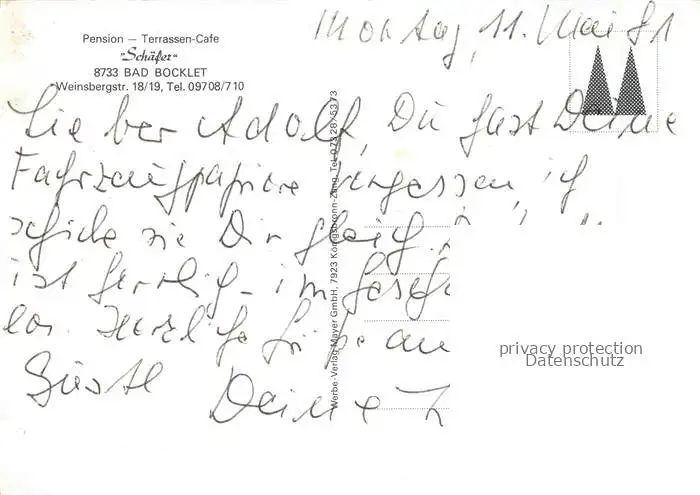 Pension — Terrassen-Cafe
"Schäfer"
8733 BAD BOCKLET
Weinsbergstr. 18/19, Tel. 09708/710
Montag, 11. Mai 81
Lieber Adolf, Du hast Deine
Fahrzeugpapiere vergessen, ich
schicke sie Dir gleich
ist herrlich. im
los. Herzliche Grüße an
Deine
Werbe-Verlag Mayer GmbH, 7923 Königsbronn-Zang, Tel. 07328/5373
privacy protection
Datenschutz